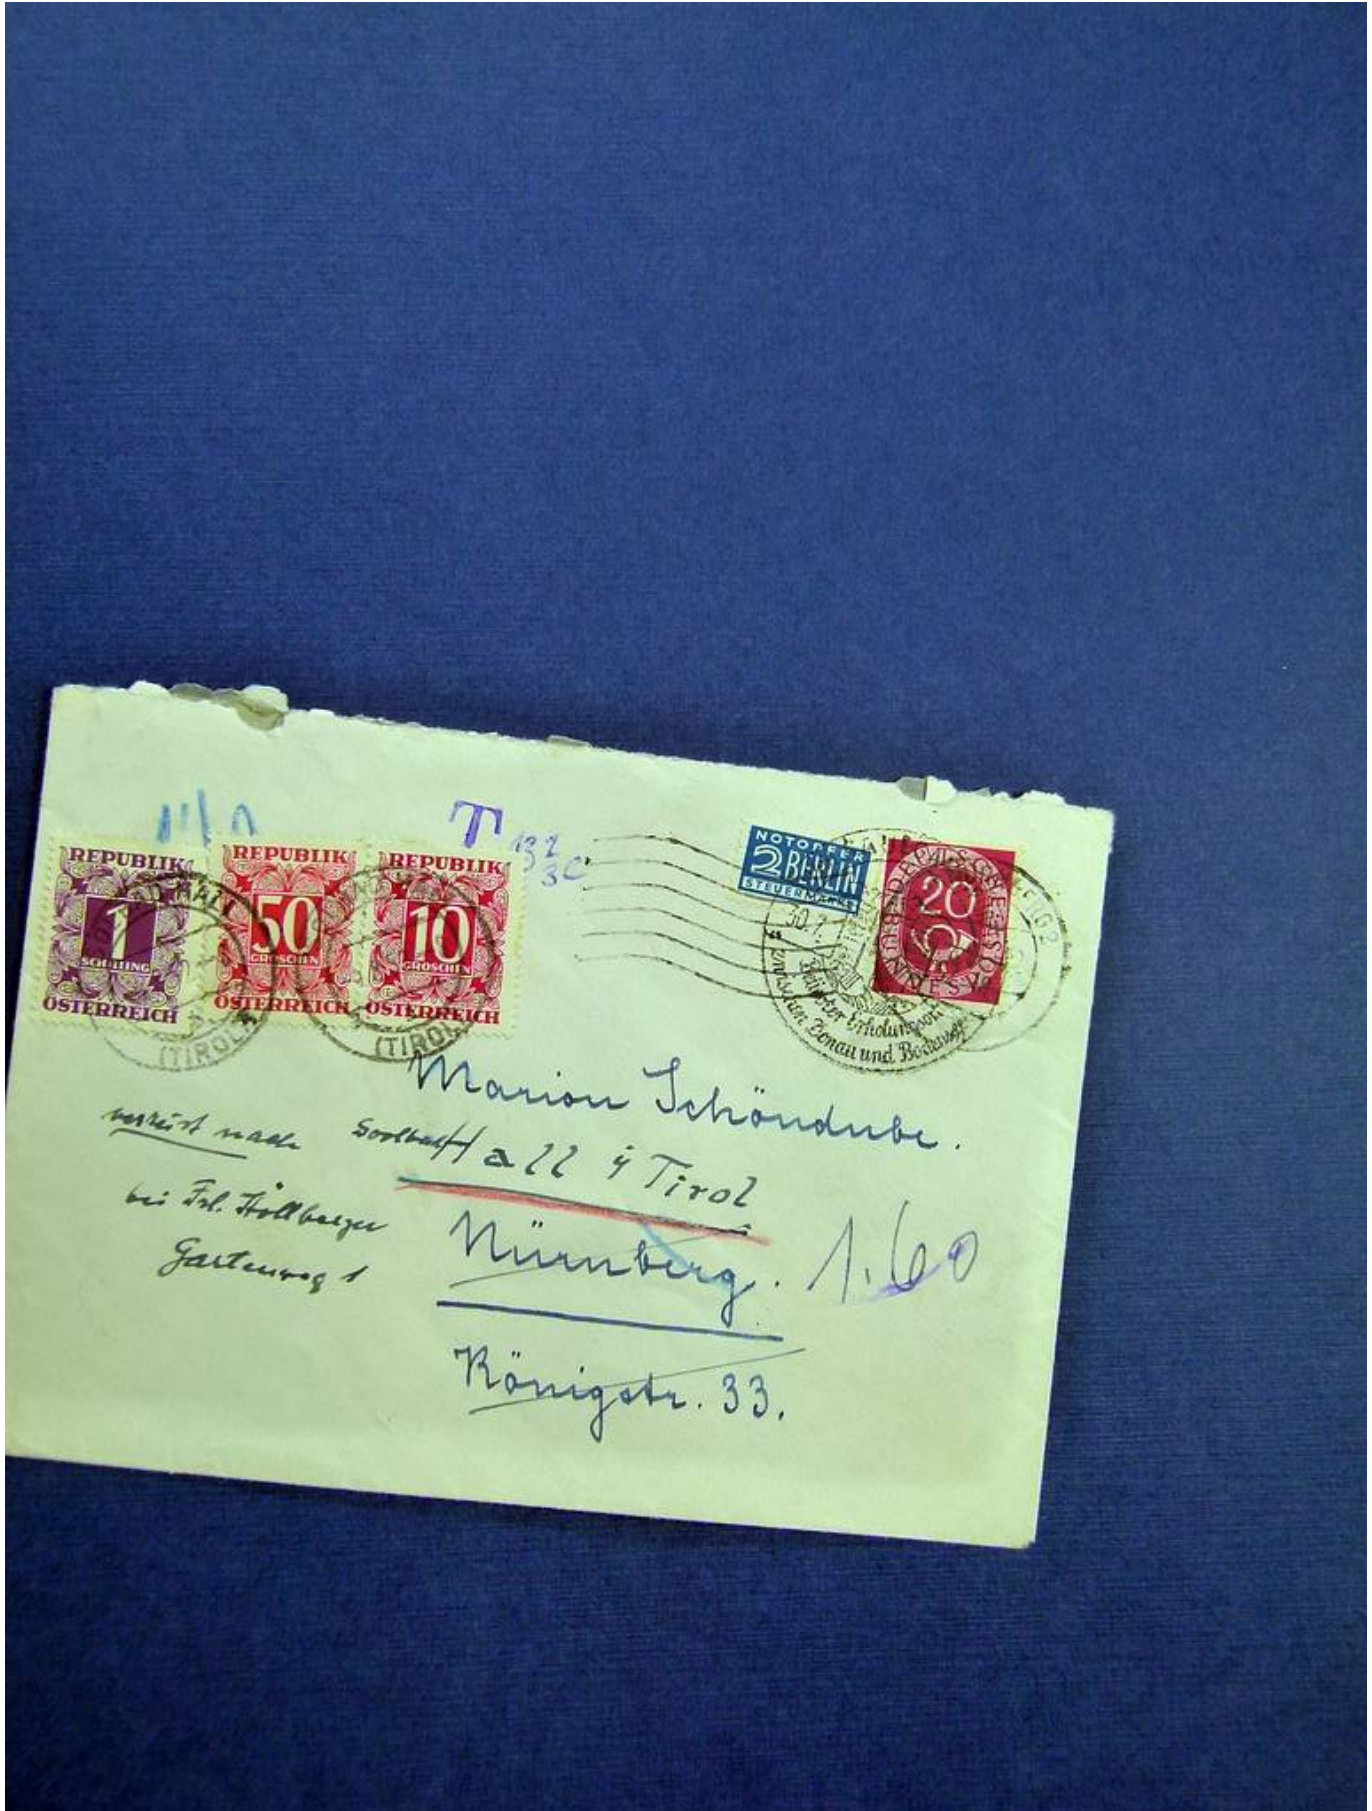 T
REPUBLIK
1
SCHILLING
ÖSTERREICH
REPUBLIK
50
GROSCHEN
ÖSTERREICH
REPUBLIK
10
GROSCHEN
ÖSTERREICH
(TIROL)
(TIROL)
NOTOPFER
2 BERLIN
STEUERMARKE
20
DEUTSCHE BUNDESPOST
30.7.
Beliebter Erholungsort
zwischen Donau und Bodensee
Marion Schöndube.
verreist nach Soolbad Hall i Tirol
bei Frl. Höllberger
Gartenweg 1
Nürnberg. 1.60
Königstr. 33.